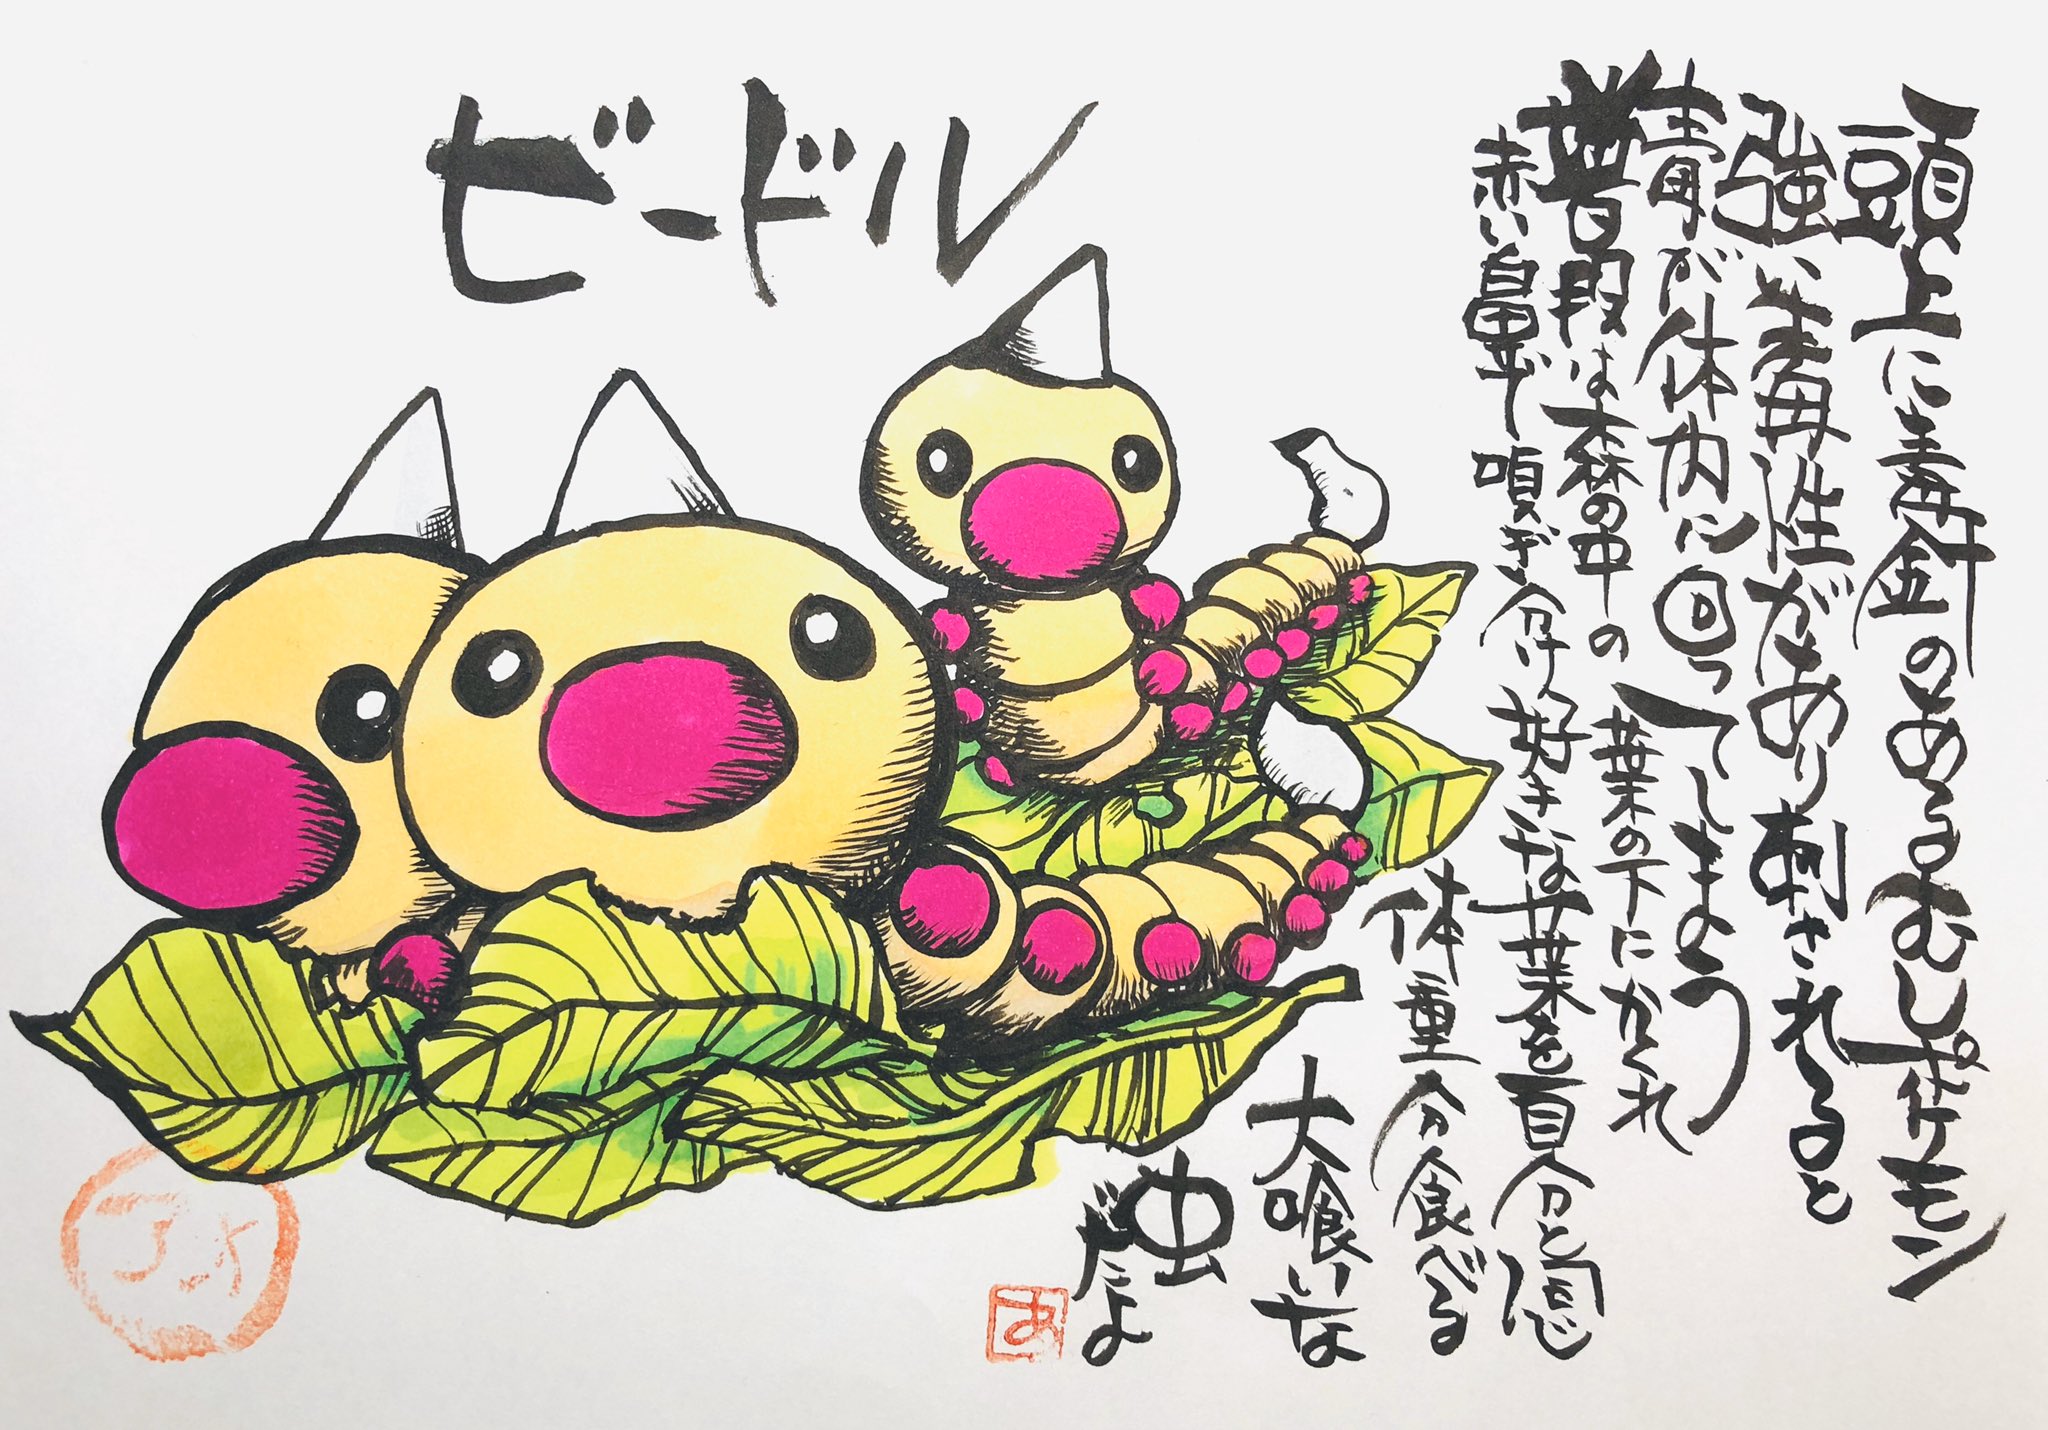 ビードル
頭上に毒針のあるむしポケモン
強い毒性があり刺されると
毒が体内に回ってしまう
普段は森の中の葉の下にかくれ
赤い鼻で嗅ぎ分け好きな葉を自分と同じ
体重分食べる
大喰いな
虫
だよ
あ